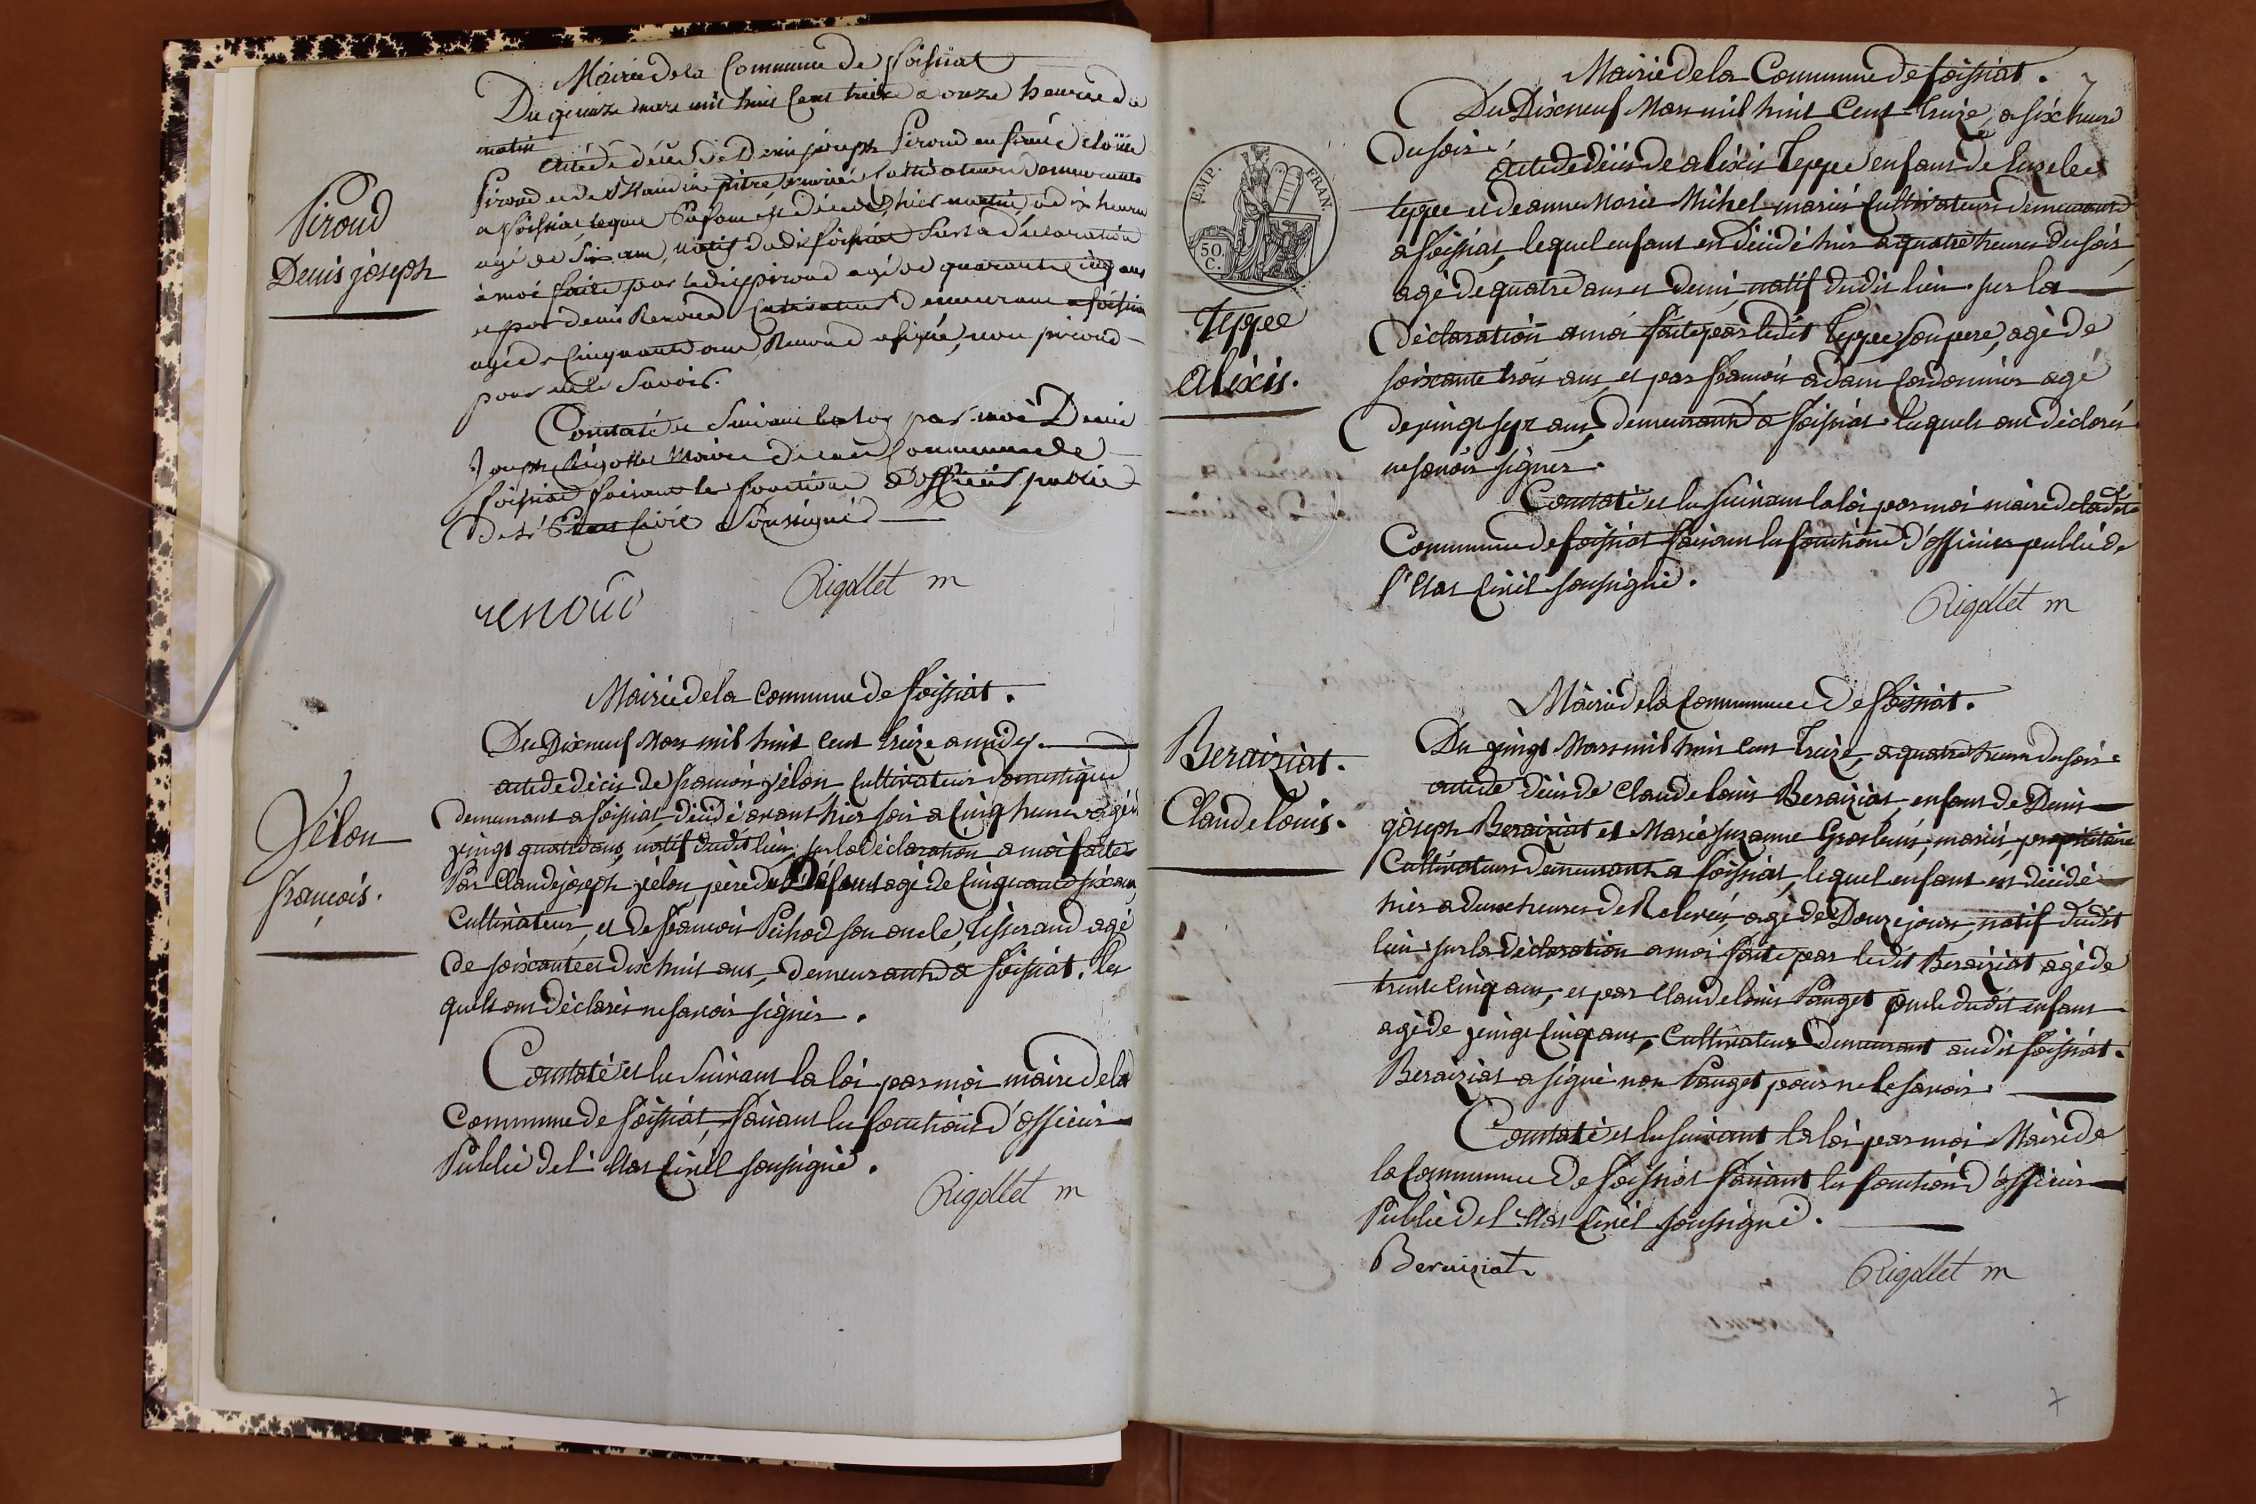 Mairie de la Commune de Foissiat
Du quinze mars mil huit Cent treize a onze heures du
matin
acte de décès de Denis joseph Piroud enfant de
Piroud et de Claudine mariés Cultivateurs demeurants
a Foissiat lequel Enfant est décédé hier matin, a dix heures
agé de Six ans, natif dudit foissiat Sur la Déclaration
à moi faite par ledit piroud agé de quarante Cinq ans
et par denis Renoud Cultivateur demeurant a foissiat
agé de Cinquante ans Renoud a signé, non piroud
pour ne le Savoir.
Constaté Suivant la loy par moi Denis
Joseph Rigollet Maire de la Commune de
foissiat faisant les fonctions d'officier public
de l'état Civil Soussigné
renoud
Rigollet m
Piroud
Denis joseph
Mairie de la Commune de foissiat.
Du Dixneuf Mars mil huit Cent treize a midy.
acte de décès de françois yélon Cultivateur domestique
demeurant a foissiat, décédé avant hier soir a Cinq heures agé de
vingt quatre ans, natif dudit lieu, sur la déclaration a moi faite
Par Claude joseph yélon père du Défunt agé de Cinquante six ans
Cultivateur, et de françois Puchod son oncle, tisserand agé
de soixante et dix huit ans, demeurant a foissiat. les
quels ont déclarés ne savoir signer.
Constaté et lu Suivant la loi par moi maire de la
Commune de foissiat, faisant les fonctions d'officier
Public de l'état Civil soussigné.
Rigollet m
Yélon
françois.
7
Mairie de la Commune de foissiat.
Du Dixneuf Mars mil huit Cent treize, a six heures
du soir.
acte de décès de alexis Teppe enfant de
teppe et de anne Marie Michel mariés Cultivateurs demeurant
a foissiat, lequel enfant est décédé hier a quatre heures du soir,
agé de quatre ans et demi, natif dudit lieu. sur la
déclaration a moi faite par ledit Teppe son pere, agé de
soixante trois ans, et par françois adam Cordonnier agé
de vingt sept ans, demeurant a foissiat. lesquels ont déclarés
ne savoir signer.
Constaté et lu suivant la loi par moi maire de ladite
Commune de foissiat faisant les fonctions d'officier public de
l'état Civil soussigné.
Rigollet m
EMP. FRAN.
50 C.
Teppe
alexis.
Mairie de la Commune de foissiat.
Du vingt Mars mil huit Cent Treize, a quatre heures du soir.
acte de décès de Claude louis Beraiziat, enfant de Denis
joseph Beraiziat et Marie suzanne mariés, propriétaire
Cultivateurs demeurants a foissiat, lequel enfant est décédé
hier a deux heures de Relevée, agé de Douze jours, natif dudit
lieu sur la déclaration a moi faite par ledit Beraiziat agé de
trente Cinq ans, et par Claude louis Pauget oncle dudit enfant
agé de vingt Cinq ans, Cultivateurs demeurant audit foissiat.
Beraiziat a signé non Pauget pour ne le savoir.
Constaté et lu suivant la loi par moi Maire de
la Commune de foissiat faisant les fonctions d'officier
Public de l'état Civil soussigné.
Beraiziat
Rigollet m
Beraiziat.
Claude louis.
7